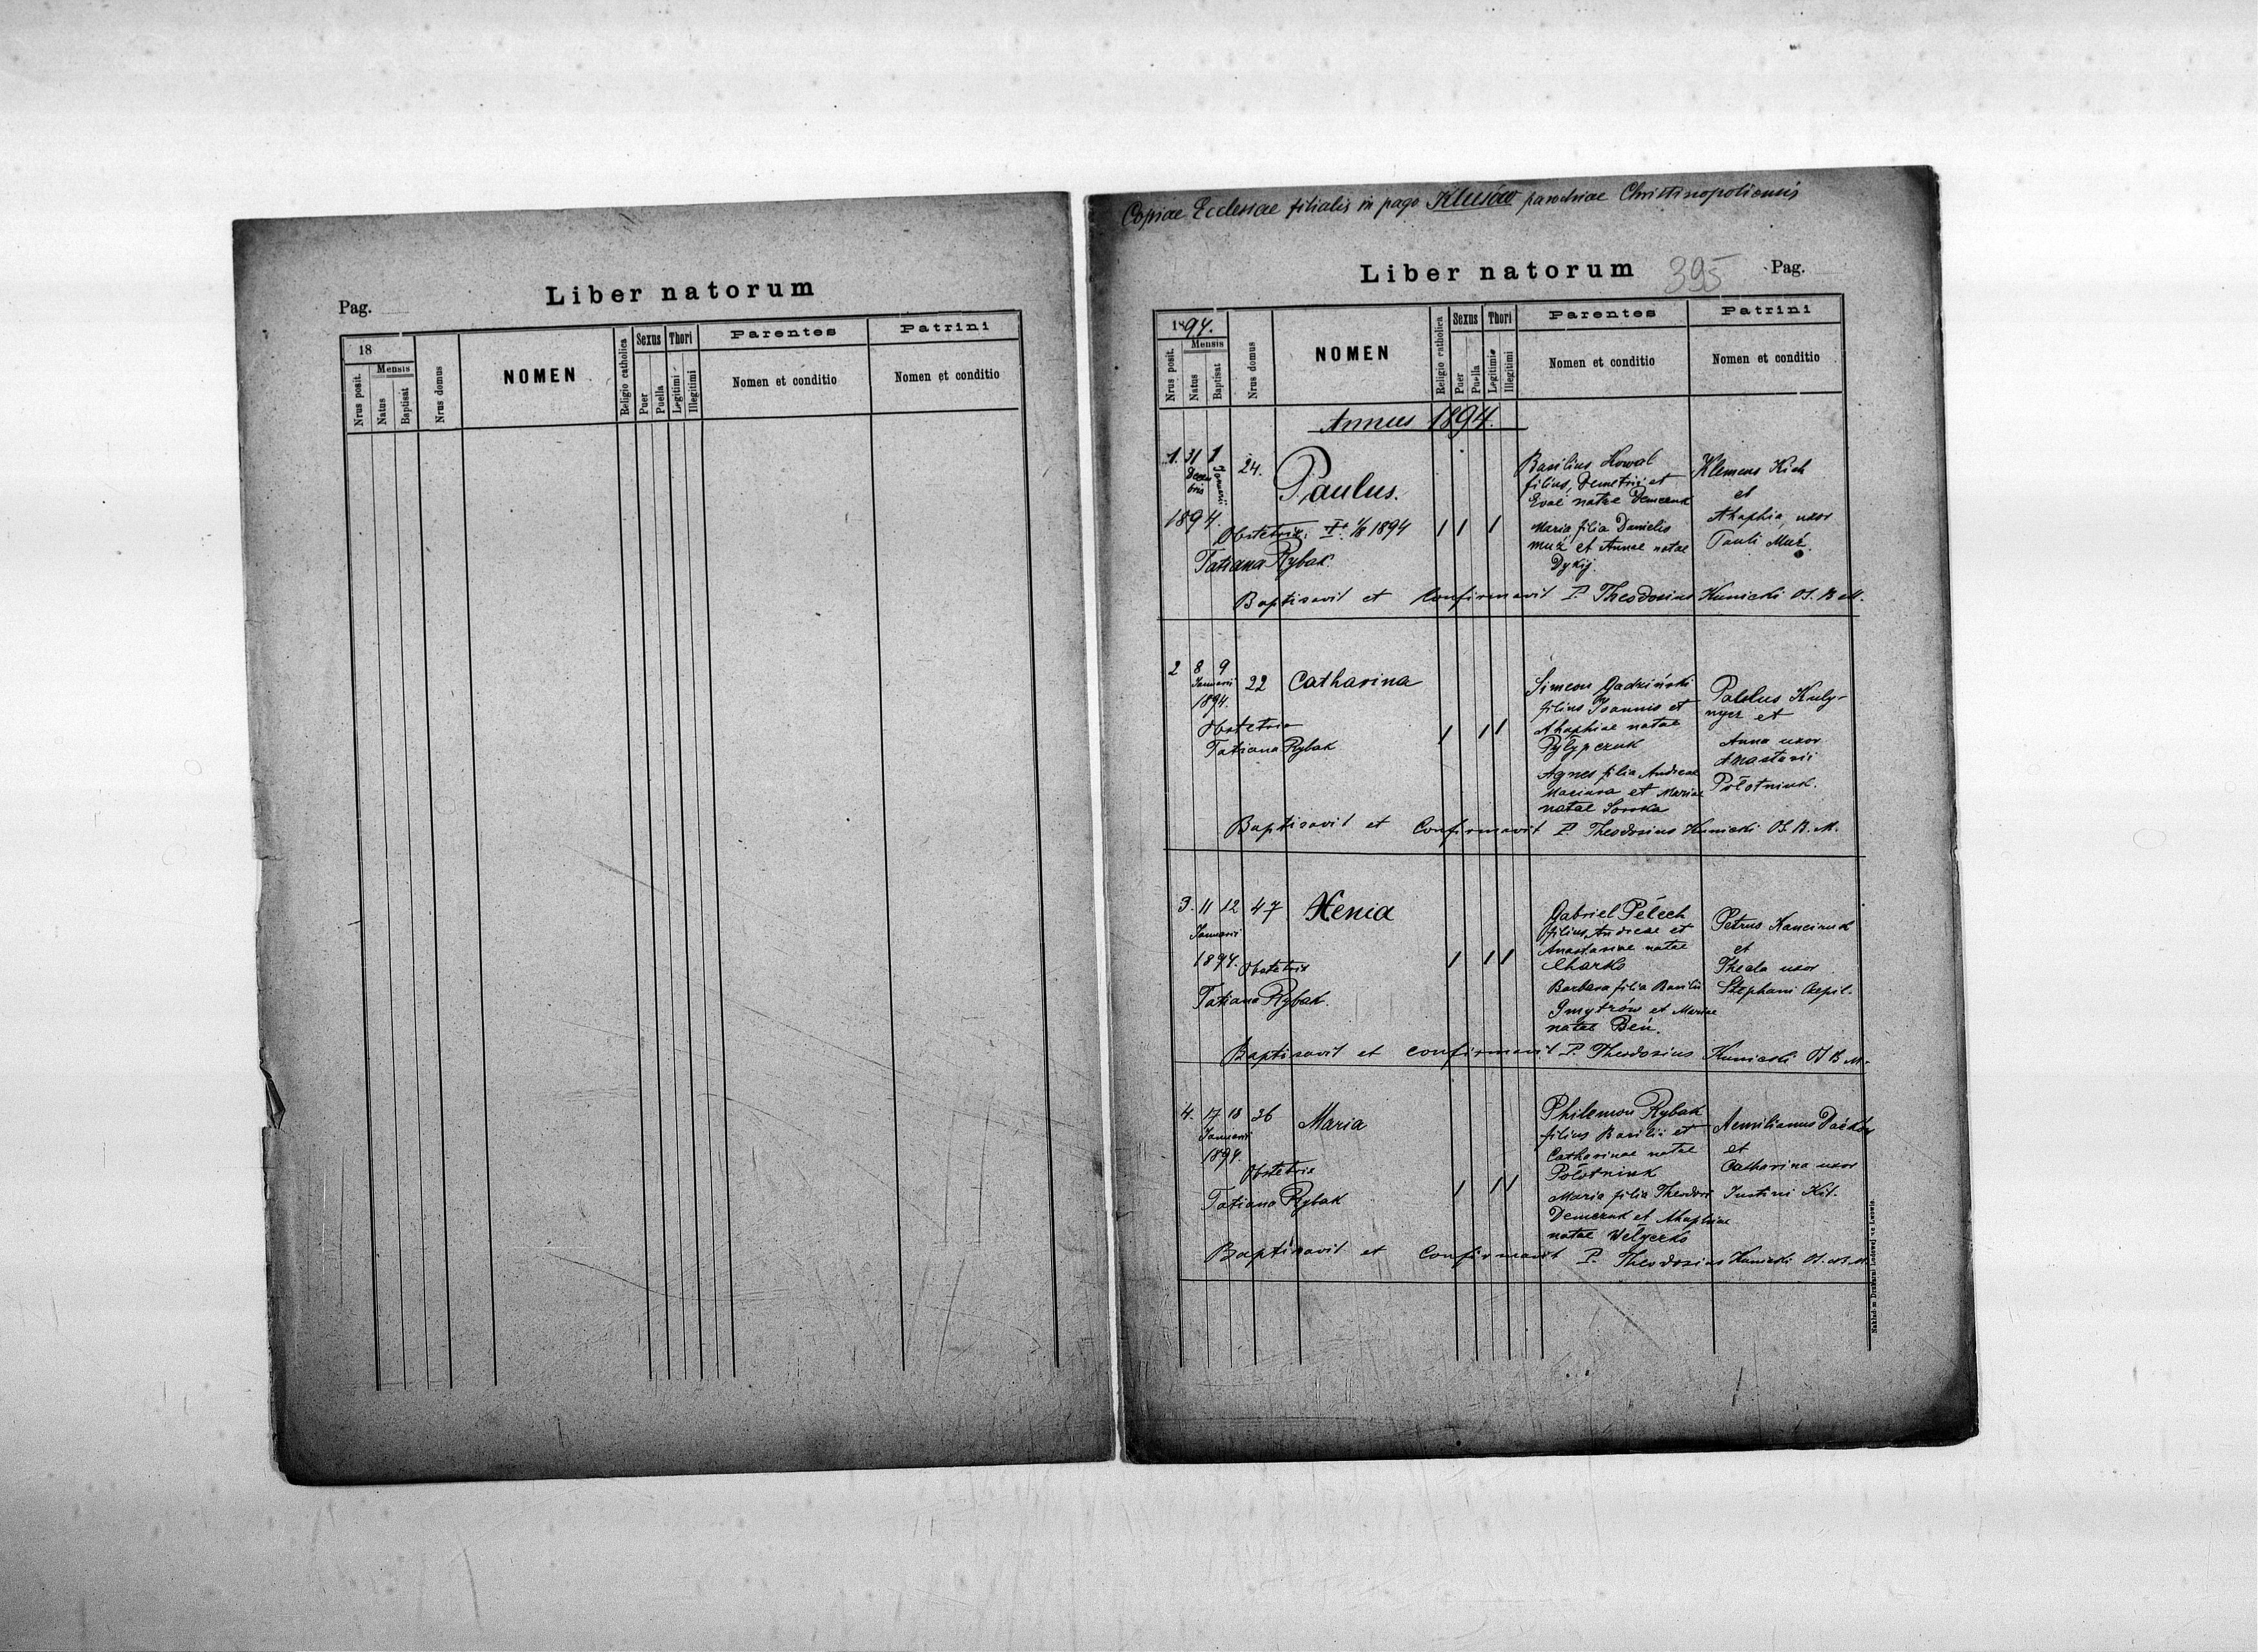 Liber natorum
Pag.
18
Mensis
Nrus posit.
Natus
Baptisat
Nrus domus
NOMEN
Religio catholica
Sexus
Puer
Puella
Thori
Legitimi
Illegitimi
Parentes
Nomen et conditio
Patrini
Nomen et conditio
Copiae Ecclesiae filialis in pago Klusów parochiae Christinopoliensis
Liber natorum 395 Pag.
1894.
Mensis
Nrus posit.
Natus
Baptisat
Nrus domus
NOMEN
Religio catholica
Sexus
Puer
Puella
Thori
Legitimi
Illegitimi
Parentes
Nomen et conditio
Patrini
Nomen et conditio
Annus 1894.
1. 31 1 24. Paulus.
Decem
bris
Januarii
1894.
Obstetrix
Tatiana Rybak
1 1 1
Basilius Kowal
filius Demetrii et
Evae natae Demczuk
Maria filia Danielis
Muź et Annae natae
Dykij.
Klemens Kich
et
Ahaphia, uxor
Pauli Muź.
Baptisavit et Confirmavit P. Theodosius Kunicki OS. B. M.
2 8 9 22 Catharina
Januarii
1894.
Obstetrix
Tatiana Rybak
1 1 1
Simeon Gadziński
filius Joannis et
Ahaphiae natae
Pyłypczuk
Agnes filia Andreae
et Mariae
natae Soroka
Paulus Kuly-
nycz et
Anna uxor
Anastasii
Połotniuk.
Baptisavit et Confirmavit P. Theodosius Kunicki OS. B. M.
3. 11 12 47 Xenia
Januarii
1894. Obstetrix
Tatiana Rybak.
1 1 1
Gabriel Pełech
filius Andreae et
Anastasiae natae
Charko
Barbara filia Basilii
Dmytrów et Mariae
natae Beń.
Petrus
et
Thecla uxor
Stephani Czepil.
Baptisavit et confirmavit P. Theodosius Kunicki OS B M.
4. 17 18 36 Maria
Januarii
1894.
Obstetrix
Tatiana Rybak
1 1 1
Philemon Rybak
filius Basilii et
Catharinae natae
Połotniuk
Maria filia Theodori
Demczuk et Ahaphiae
natae Wełyczko
Aemilianus
et
Catharina uxor
Justini Kit.
Baptisavit et Confirmavit P. Theodosius Kunicki OS. B. M.
Nakładem Drukarni Ludowej we Lwowie.